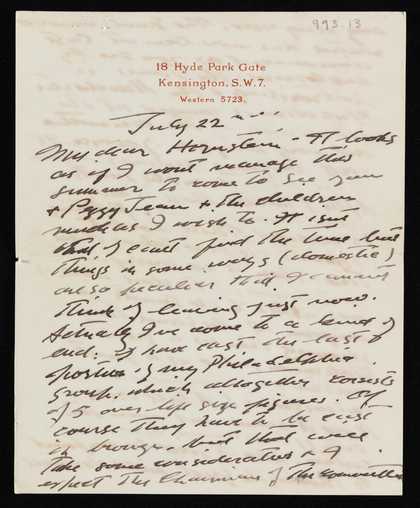 993.13
18 Hyde Park Gate
Kensington, S.W.7.
Western 5723.
July 22
My dear Hornstein - It looks
as if I wont manage this
summer to come to see you
+ Peggy Jean + the children
much as I wish to. It isnt
that I cant find the time but
things in some ways (domestic)
are so peculiar that I cannot
think of leaving just now.
Actually I've come to a kind of
end: I have cast the last
portion of my Philadelphia
group, which altogether consists
of 5 over life size figures. Of
course they have to be cast
in bronze - but that will
take some consideration & I
expect the Chairman of the Committee